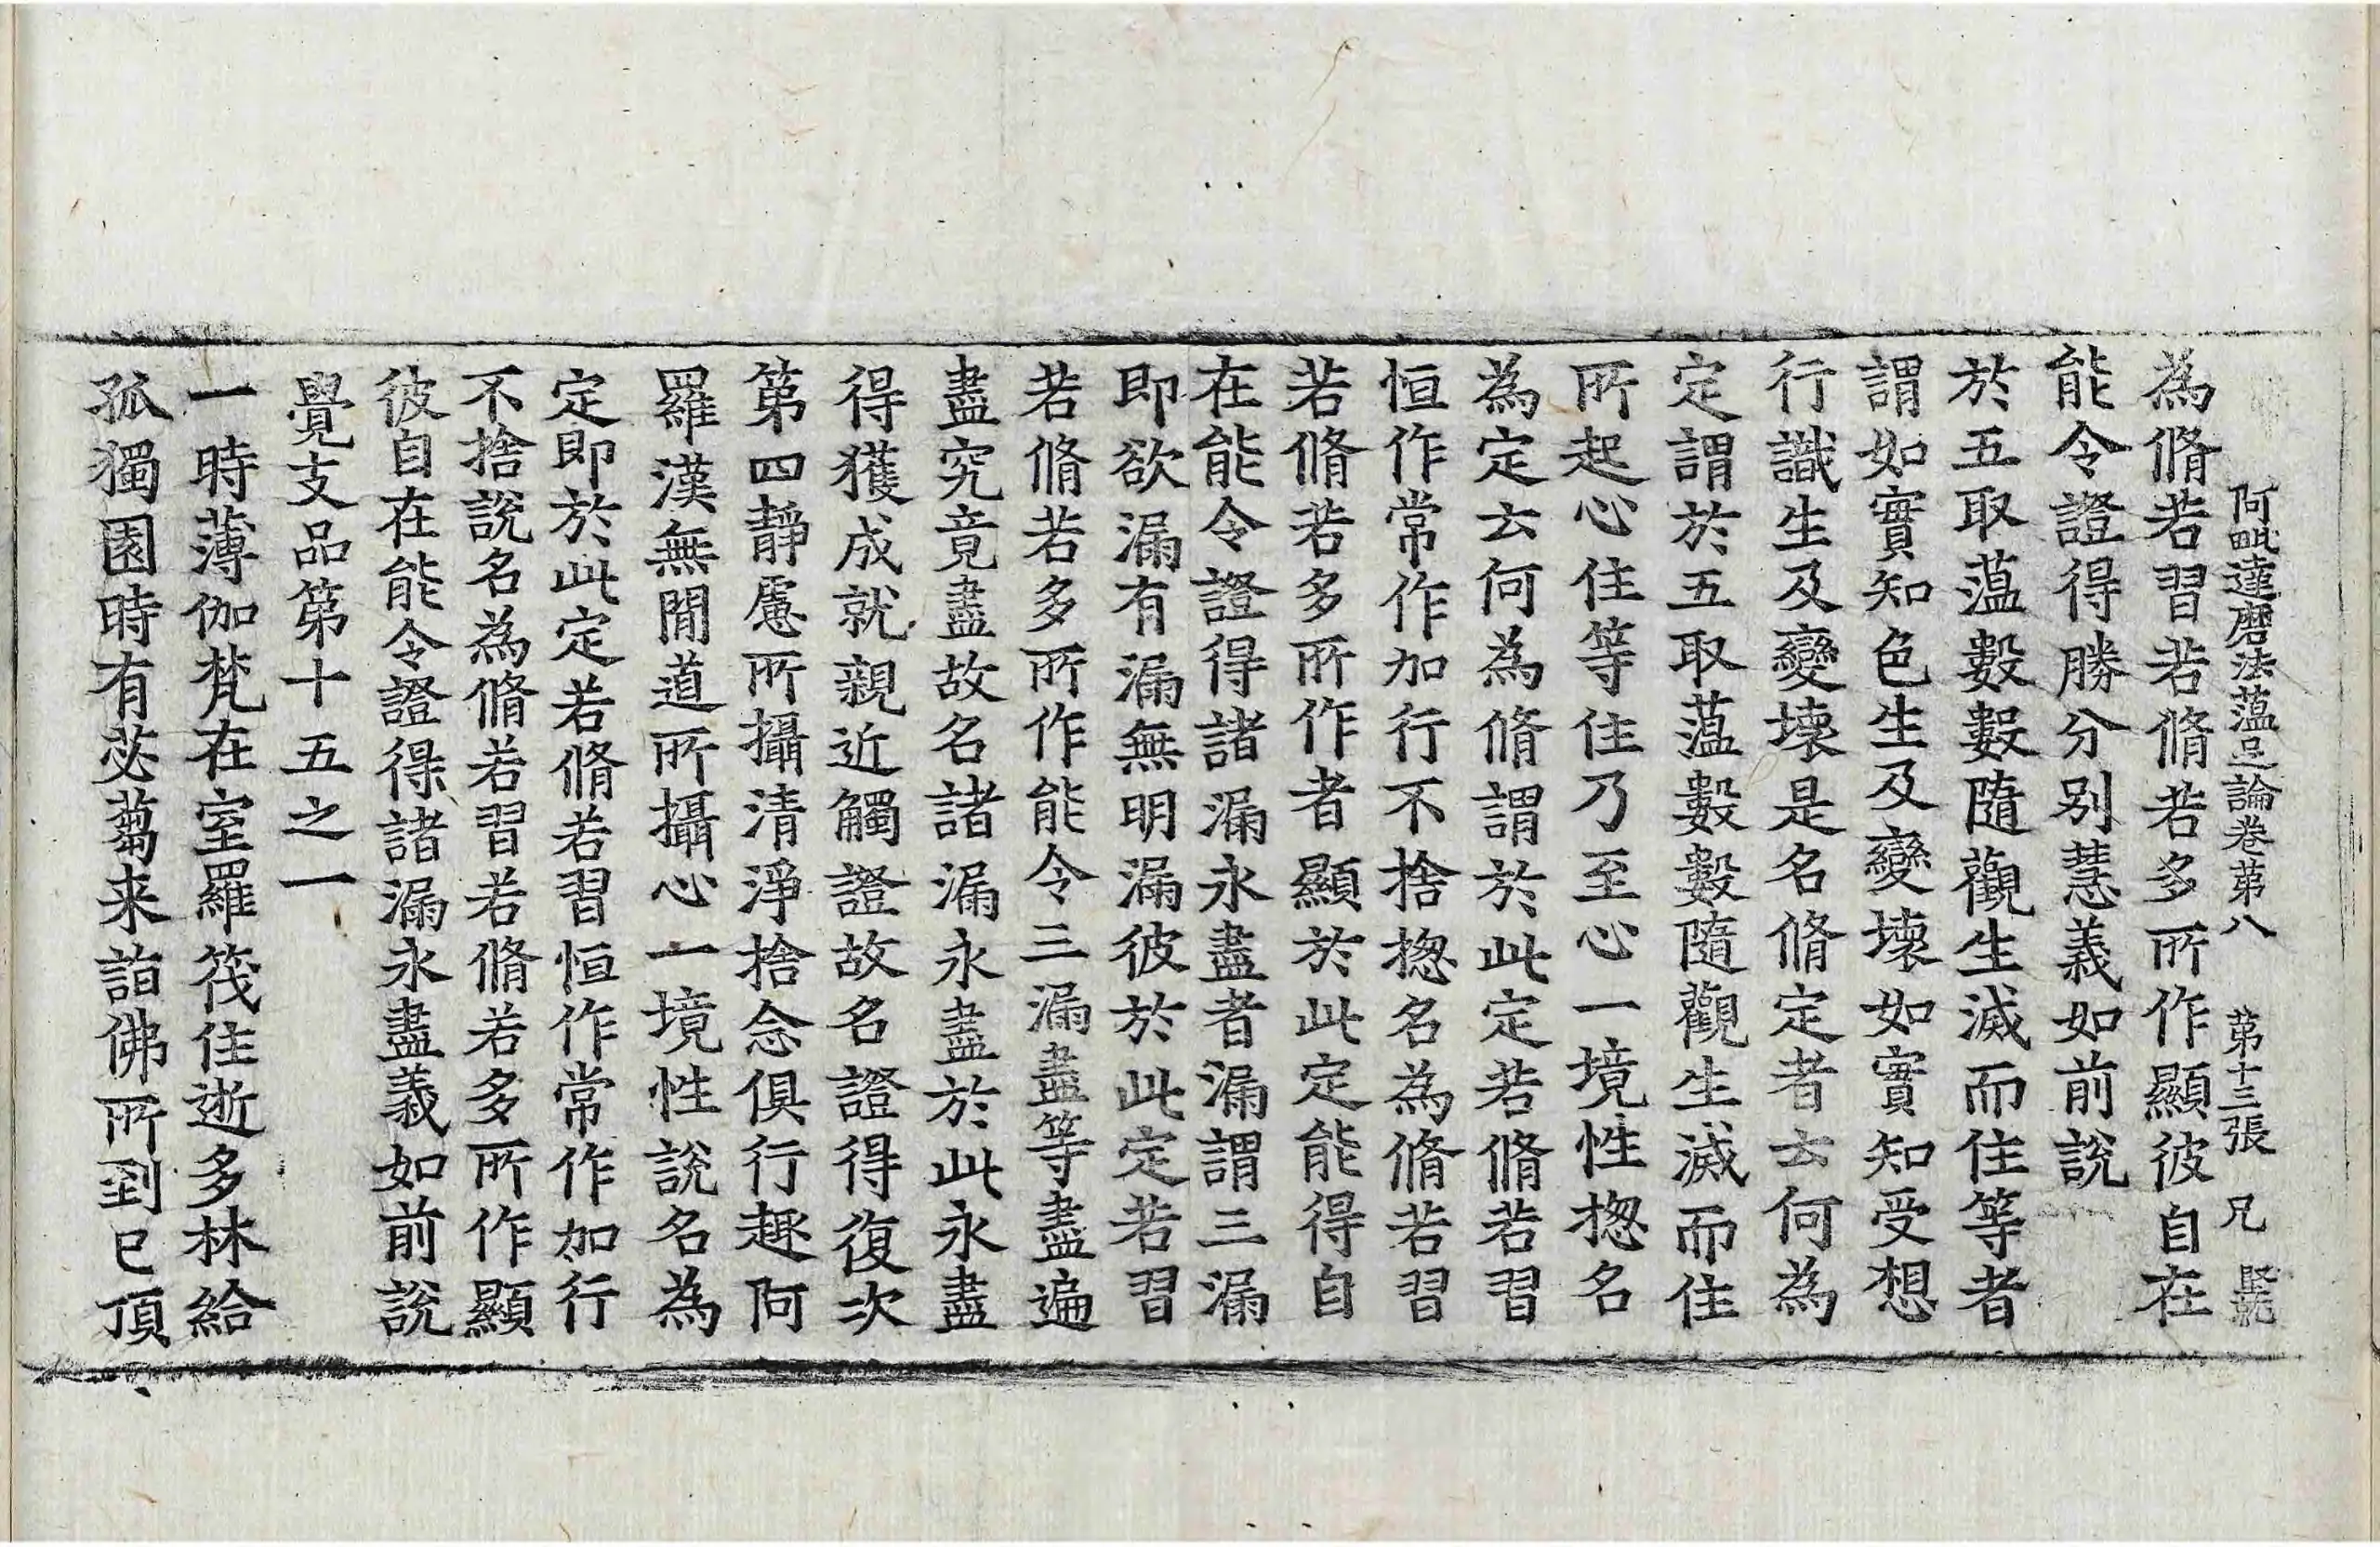 阿毗達磨法蘊足論卷苐八　苐十三張　兄
為脩若習若脩若多所作顯彼自在
能令證得勝分別慧義如前說
於五取蘊數數隨觀生滅而住等者
謂如實知色生及變壞如實知受想
行識生及變壞是名脩定者云何為
定謂於五取蘊數數隨觀生滅而住
所起心住等住乃至心一境性揔名
為定云何為脩謂於此定若脩若習
恒作常作加行不捨揔名為脩若習
若脩若多所作者顯於此定能得自
在能令證得諸漏永盡者漏謂三漏
即欲漏有漏無明漏彼於此定若習
若脩若多所作能令三漏盡等盡遍
盡究竟盡故名諸漏永盡於此永盡
得獲成就親近觸證故名證得復次
第四靜慮所攝清淨捨念俱行趣阿
羅漢無閒道所攝心一境性說名為
定即於此定若脩若習恒作常作加行
不捨說名為脩若習若脩若多所作顯
彼自在能令證得諸漏永盡義如前說
覺支品第十五之一
一時薄伽梵在室羅筏住逝多林給
孤獨園時有苾芻来詣佛所到已頂